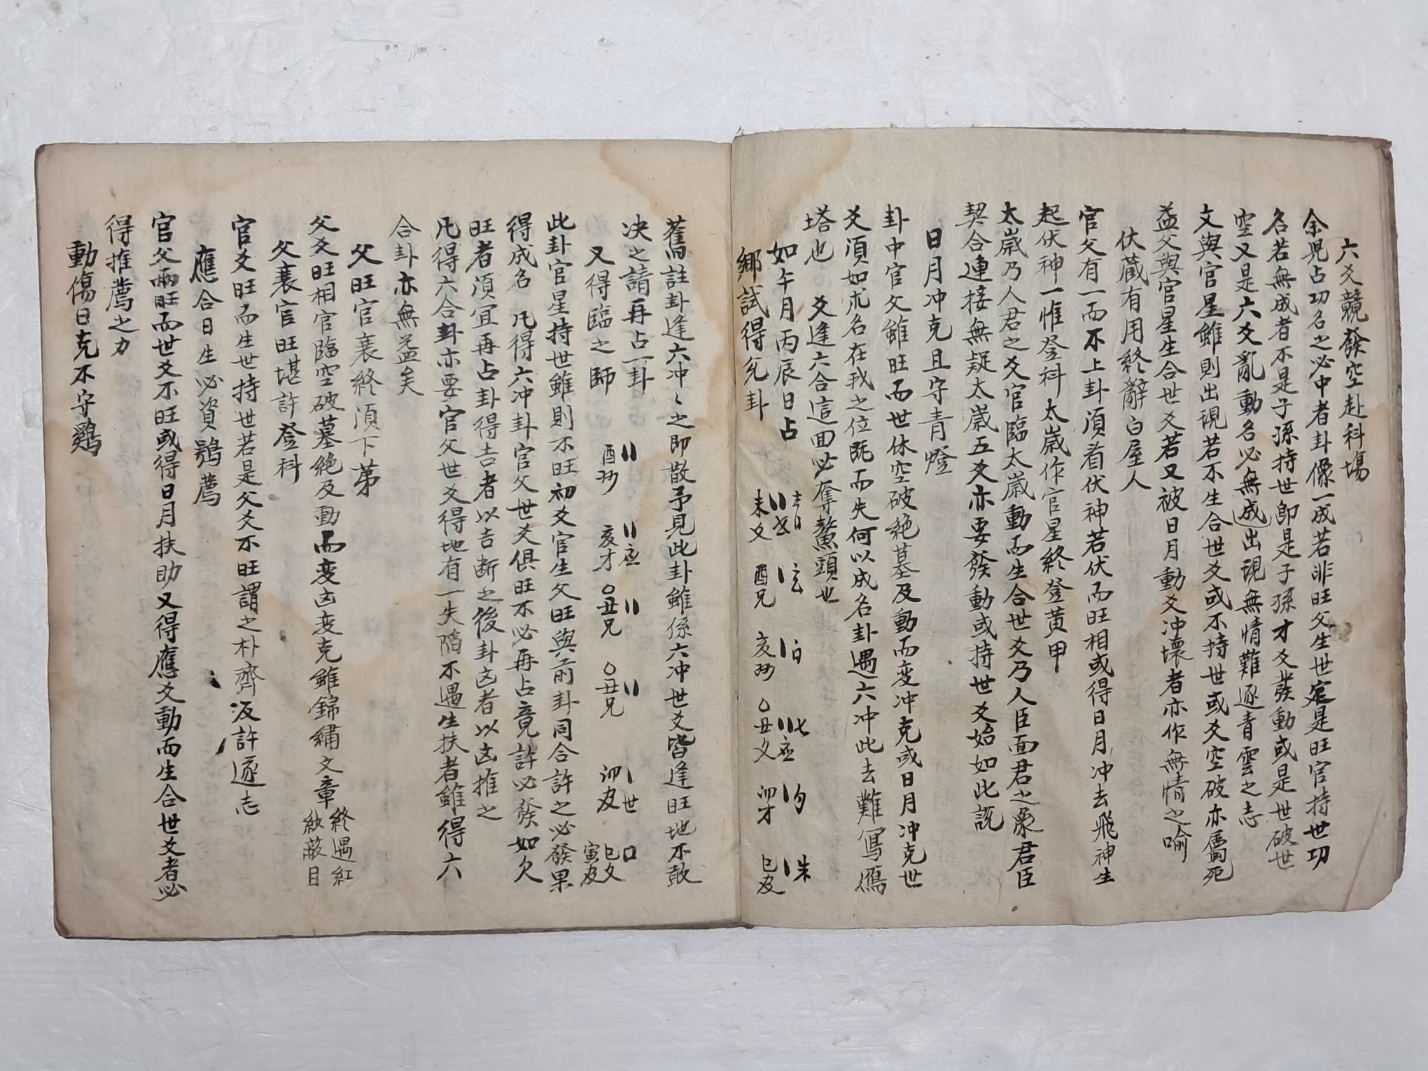 六爻競發空赴科場
余見占功名之必中者卦像一成若非旺父生世定是旺官持世功
名若無成者不是子孫持世即是子孫才爻發動或是世破世
空又是六爻亂動名必無成出現無情難逐青雲之志
文與官星雖則出現若不生合世爻或不持世或爻空破亦屬死
益父與官星生合世爻若又被日月動爻冲壞者亦作無情之喻
伏藏有用終辭白屋人
官父有一而不上卦須看伏神若伏而旺相或得日月冲去飛神生
起伏神一惟登科太歲作官星終登黃甲
太歲乃人君之爻官臨太歲動而生合世爻乃人臣面君之象君臣
契合連接無疑太歲五爻亦要發動或持世爻始如此説
日月冲克且守青燈
卦中官父雖旺而世休空破絕墓及動而变冲克或日月冲克世
爻須如求名在我之位既而失何以成名卦遇六冲此去難寫鴈
塔也 爻逢六合這回必奪鰲頭也
如午月丙辰日占
鄉試得兑卦
未父 酉兄 亥孙 丑父 卯才 巳官
舊註卦逢六冲之即散予見此卦雖係六冲世爻皆逢旺地不敢
決之請再占一卦
又得臨之師
酉孙 應 亥才 丑兄 丑兄 卯官 世 巳父 寅官
此卦官星持世雖則不旺初爻官生父旺與前卦同合許之必發果
得成名凡得六冲卦官父世爻俱旺不必再占竟許必發如欠
旺者須宜再占卦得吉者以吉断之後卦凶者以凶推之
凡得六合卦亦要官父世爻得地有一失陷不遇生扶者雖得六
合卦亦無益矣
父旺官衰終須下第
父爻旺相官臨空破墓絕及動而变凶变克雖錦繡文章 終遇紅紗蔽目
父衰官旺堪許登科
官爻旺而生世持世若是父爻不旺謂之朴齊反許遂志
應合日生必資鶚薦
官父兩旺而世爻不旺或得日月扶助又得應爻動而生合世爻者必
得推薦之力
動傷日克不守鷄